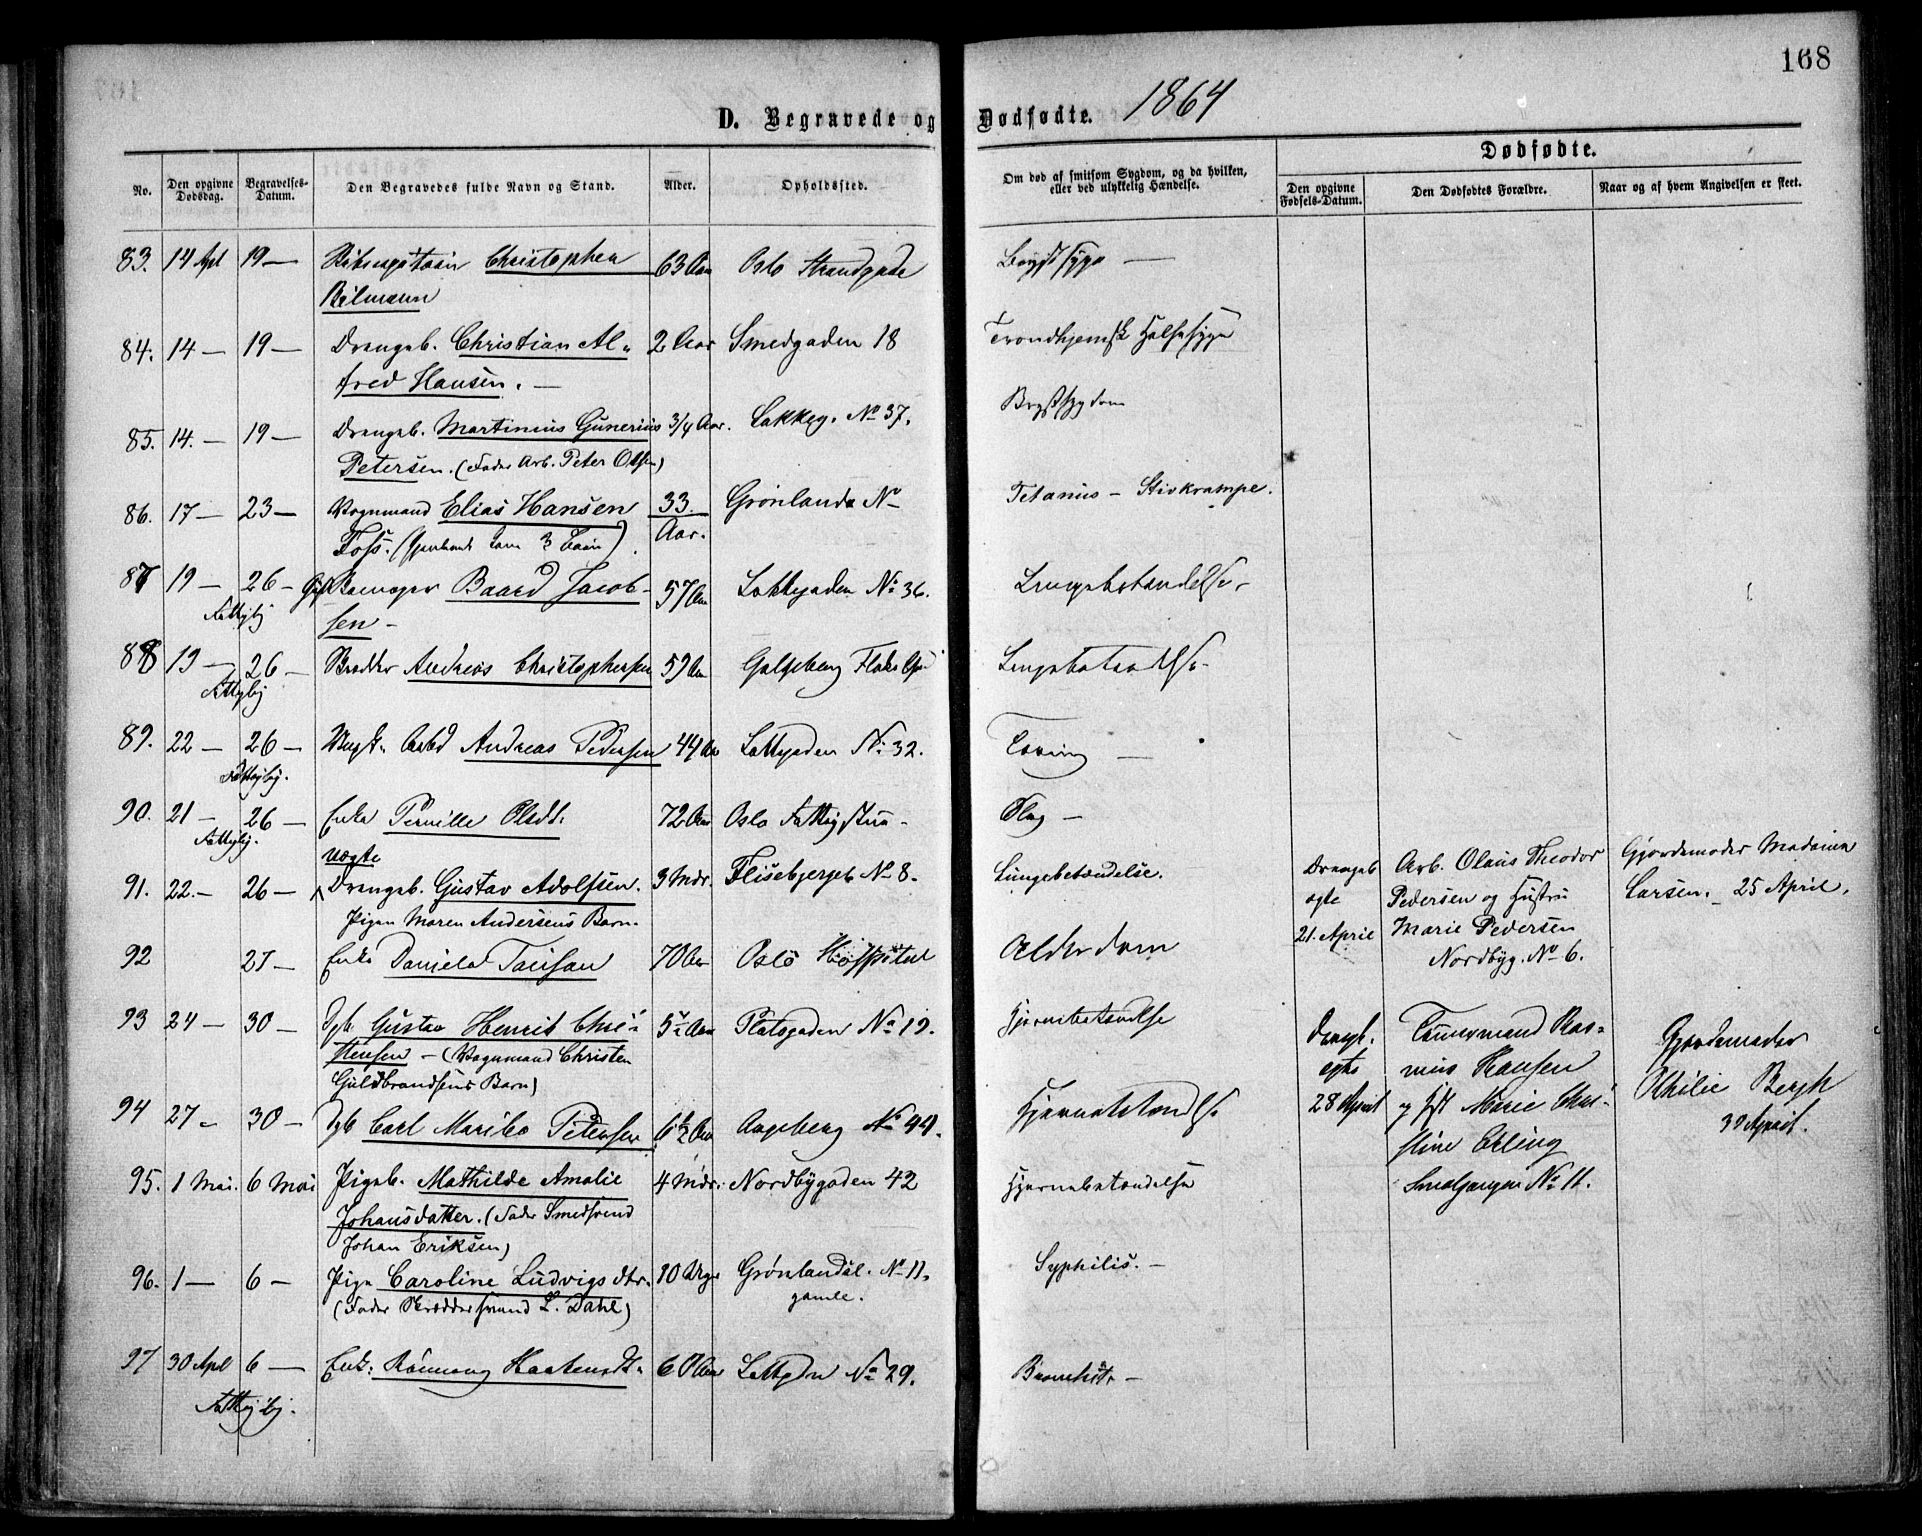 168
D. Begravede og Dødfødte. 1864
No.
Den opgivne Dødsdag.
Begravelses-Datum.
Den Begravedes fulde Navn og Stand.
Alder.
Opholdssted.
Om død af smitsom Sygdom, og da hvilken, eller ved ulykkelig Hændelse.
Dødfødte.
Den opgivne Fødsels-Datum.
Den Dødfødtes Forældre.
Naar og af hvem Angivelsen er skeet.
83. 14 Apl 19 — Christopher 63 Aar Oslo Strandgade Brystsyge —
84. 14 — 19 — Drengeb. Christian Al- 2 Aar Smedgaden 18 Trondhjemsk Halssyge
fred Hansen. —
85. 14. — 19 — Drengeb. Martinius Gunerius 3/4 Aar. Lakkeg. No 37. Brystsygdom
Petersen. (Fader Arb. Peter Olsen)
86. 17 — 23 — Vognmand Elias Hansen 33. Aar. Grønland No Tetanus — Stivkrampe.
Foss.
87 19 — 26 — Baard Jacob- 57 Aar Lakkegaden No 36. Lungebetændelse
Fattigby sen —
88 19 — 26 — Andreas Christophersen 59 Aar Galgeberg Lungebetændelse
Fattigby
89. 22 — 26 — Andreas Pedersen 44 Aar Lakkegaden No 32. Tæring —
Fattigby.
90. 21 — 26 — Enke Pernille Olsdt. 72 Aar Oslo Slag —
Fattigby.
uægte
91. 22. — 26 — Drengeb. Gustav Adolfsen. 3 Mdr. Flisebjerget No 8. Lungebetændelse.
Pigen Maren Andersens Barn.
Drengeb ægte 21. April
Arb. Olaus Theodor
Pedersen og Hustru
Marie Pedersen
Nordbyg. No 6.
Gjordemoder Madame
Larsen. 25 April.
92 27 — Enke 70 Aar Oslo Hospital Alderdom
93 24 — 30 — Dgb. Gustav Henrik Chri- Aar Platsgaden No 19. Hjernebetændelse
stensen — (Vognmand Christen
Guldbrandsens Barn)
ægte 28 April
Tømmermand Ras-
mus Hansen
og Marie Chri-
stine Erling
No 11.
Gjordemoder
Othilie Bergh
30 April.
94 27 — 30 — Dgb Carl Petersen 6 1/2 Aar Aageberg No 44. Hjernebetændelse
95. 1 Mai. 6 Mai Pigeb. Mathilde Amalie 4 Mdr. Nordbygaden 42 Hjernebetændelse
Johansdatter. (Fader Smedsvend
Johan Eriksen)
96. 1 — 6 — Pige Caroline Ludvigsdtr. 10 Uger Grønlandsl. No 11. Syphilis. —
(Fader Skræddersvend L. Dahl) gamle.
97 30 Apl 6 — Enke 60 Aar No 29.
Fattigby.